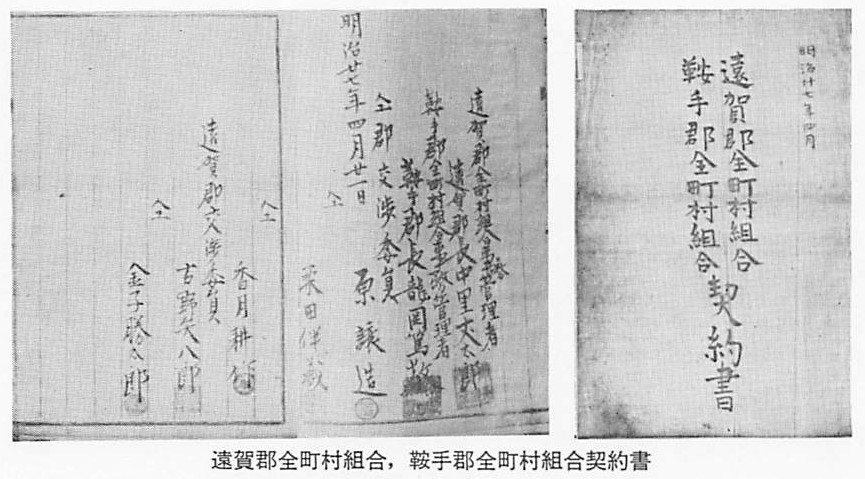 明治廿七年四月
遠賀郡全町村組合
鞍手郡全町村組合
契約書
遠賀郡全町村組合事務管理者
遠賀郡長中里丈太郎
鞍手郡全町村組合事務管理者
鞍手郡長龍岡篤
仝郡交渉委員
原譲造
明治廿七年四月廿一日
仝
仝
香月耕
遠賀郡交渉委員
古野矢八郎
仝
金子勝太郎
遠賀郡全町村組合，鞍手郡全町村組合契約書